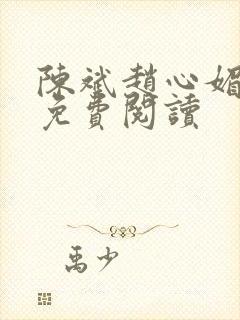 陳斌趙心媚
免費閱讀
禹少